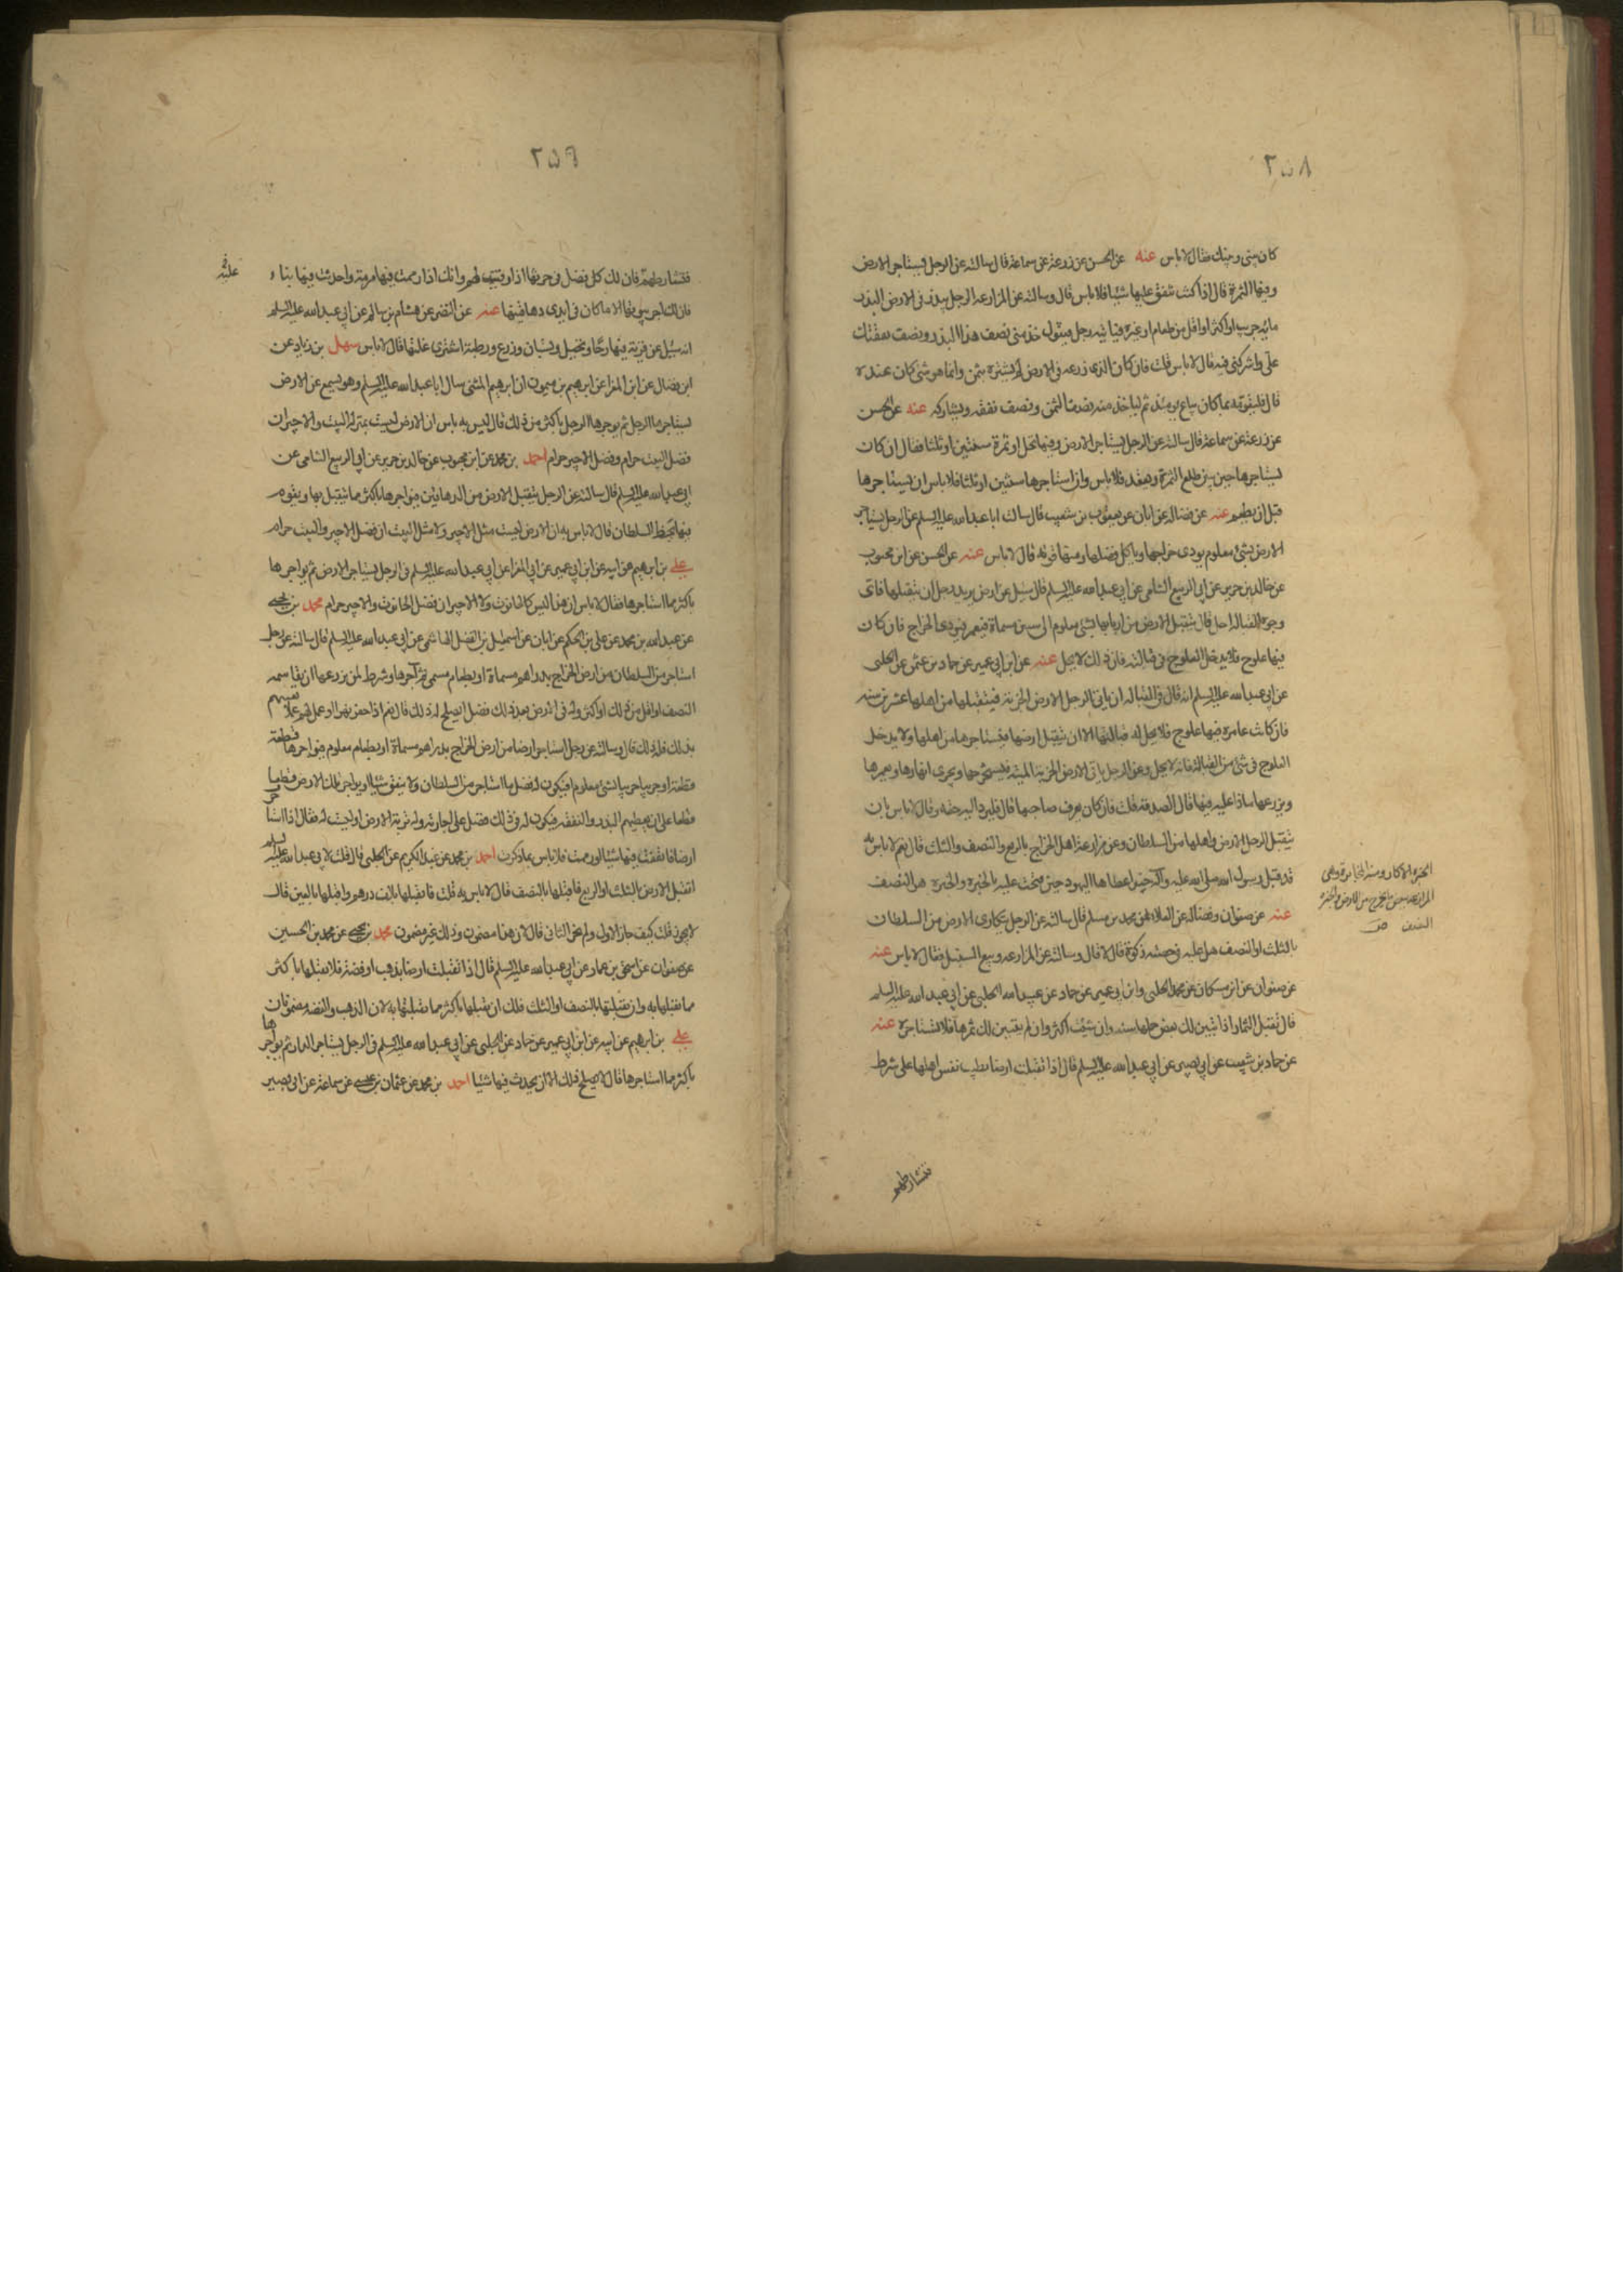 ٢٥٨
كان بيني وبينك فقال لا باس عنه عن الحسن عن زرعة عن سماعة قال سالته عن الرجل يستاجر الارض
وفيها الثمرة قال اذا كنت تنفق عليها شيئا فلا باس قال وسالته عن المزارعه الرجل يبذر في الارض البذر
مايه جريب او اكثر او اقل من طعام او غيره فياتيه رجل فيقول خذ مني نصف هذا البذر ونصف نفقتك
علي واشركني فيه قال لا باس قلت فان كان الذي زرعه في الارض لم يشتره بثمن وانما هو شئ كان عنده
قال فليقومه بما كان يباع يومئذ ثم لياخذ منه نصف الثمن ونصف نفقه ويشاركه عنه عن الحسن
عن زرعة عن سماعة قال سالته عن الرجل يستاجر الارض وفيها نخل او ثمرة سنتين او ثلثا فقال ان كان
يستاجرها حين يبين طلع الثمرة ويعقد فلا باس وان استاجرها سنتين او ثلثا فلا باس ان يستاجرها
قبل ان يطعم عنه عن فضاله عن ابان عن يعقوب بن شعيب قال سالت ابا عبد الله عليه السلم عن الرجل يستاجر
الارض بشئ معلوم يودى خراجها وياكل فضلها ومنها قوته قال لا باس عنه عن الحسن عن ابن محبوب
عن خالد بن جرير عن ابي الربيع الشامي عن ابي عبد الله عليه السلم قال سئل عن ارض يريد رجل ان يتقبلها فاى
وجوه القباله احل قال يتقبل الارض من اربابها بشئ معلوم الى سنين مسماة فيعمر ويودى الخراج فان كان
فيها علوج فلا يدخل العلوج في قبالته فان ذلك لا يحل عنه عن ابن ابي عمير عن حماد بن عثمن عن الحلبي
عن ابي عبد الله عليه السلم انه قال في القباله ان ياتى الرجل الارض الخربه فيتقبلها من اهلها عشرين سنه
فان كانت عامره فيها علوج فلا يحل له قبالتها الا ان يتقبل ارضها فيستاجرها من اهلها ولا يدخل
العلوج في شئ من القباله فانه لا يحل وعن الرجل ياتى الارض الخربه الميته فيستخرجها ويجرى انهارها ويعمرها
ويزرعها ماذا عليه فيها قال الصدقه قلت فان كان يعرف صاحبها قال فليرد اليه حقه وقال لا باس بان
يتقبل الرجل الارض واهلها من السلطان وعن مزارعة اهل الخراج بالربع والنصف والثلث قال نعم لا باس به
قد قبل رسول الله صلى الله عليه وآله خيبر اعطاها اليهود حين فتحت عليه بالخبره والخبره هى النصف
عنه عن صفوان وفضاله عن العلا عن محمد بن مسلم قال سالته عن الرجل يتكارى الارض من السلطان
بالثلث او النصف هل عليه في حصته زكوة قال لا قال وسالته عن المزارعه وبيع السنين فقال لا باس عنه
عن صفوان عن ابن مسكان عن محمد الحلبي وابن ابي عمير عن حماد عن عبيد الله الحلبي عن ابي عبد الله عليه السلم
قال تقبل الثمار اذا تبين لك بعض حملها سنه وان شئت اكثر وان لم يتبين لك ثمرها فلا تستاجره عنه
عن حماد بن شعيب عن ابي بصير عن ابي عبد الله عليه السلم قال اذا تقبلت ارضا بطيب نفس اهلها على شرط
الخبره الاكار ومنه المخابرة وهى
المزارعه ببعض ما يخرج من الارض والخبره
النصف
فتشارطهم
٢٥٩
فتشارطهم فان لك كل فضل في حرثها اذا وفيت لهم وانك اذا رممت فيها مرمة واحدثت فيها بناء
فان لك اجر بيوتها الا ما كان في ايدى دهاقينها عنه عن النضر عن هشام بن سالم عن ابي عبد الله عليه السلم
انه سئل عن قرية فيها رحا ونخيل وبستان وزرع ورطبة اشترى غلتها قال لا باس سهل بن زياد عن
ابن فضال عن ابي المغرا عن ابرهيم بن ميمون ان ابرهيم المثنى سال ابا عبد الله عليه السلم وهو يسمع عن الارض
يستاجرها الرجل ثم يوجرها الرجل باكثر من ذلك قال ليس به باس ان الارض ليست بمنزلة البيت والاجير ان
فضل البيت حرام وفضل الاجير حرام احمد بن محمد عن ابن محبوب عن خالد بن جرير عن ابي الربيع الشامى عن
ابي عبد الله عليه السلم قال سالته عن الرجل يتقبل الارض من الدهاقين فيواجرها باكثر مما يتقبل بها ويقوم
فيها بحظ السلطان قال لا باس به ان الارض ليست مثل الاجير ولا مثل البيت ان فضل الاجير والبيت حرام
علي بن ابرهيم عن ابيه عن ابن ابي عمير عن ابي المغرا عن ابي عبد الله عليه السلم في الرجل يستاجر الارض ثم يواجرها
باكثر مما استاجرها فقال لا باس ان هذا ليس كالحانوت ولا الاجير ان فضل الحانوت والاجير حرام محمد بن يحيى
عن عبد الله بن محمد عن علي بن الحكم عن ابان عن اسمعيل بن الفضل الهاشمى عن ابي عبد الله عليه السلم قال سالته عن رجل
استاجر من السلطان من ارض الخراج بدراهم مسماة او بطعام مسمى ثم آجرها وشرط لمن يزرعها ان يقاسمه
النصف او اقل من ذلك او اكثر وله في الارض بعد ذلك فضل ايصلح له ذلك قال نعم اذا حفر نهرا او عمل لهم عملا يعينهم
بذلك فله ذلك قال وسالته عن رجل استاجر ارضا من ارض الخراج بدراهم مسماة او بطعام معلوم فيواجرها قطعة
قطعة او جريبا جريبا بشئ معلوم فيكون له فضل ما استاجر من السلطان ولا ينفق شيئا او يواجر تلك الارض قطعا
قطعا على ان يعطيهم البذر والنفقه فيكون له في ذلك فضل على اجارته وله تربة الارض او ليست له فقال اذا استاجر
ارضا فانفقت فيها شيئا او رممت فلا باس بما ذكرت احمد بن محمد عن عبد الكريم عن الحلبي قال قلت لابي عبد الله عليه السلم
اتقبل الارض بالثلث او الربع فاقبلها بالنصف قال لا باس به قلت فاتقبلها بالف درهم واقبلها بالفين قال
لا يجوز قلت كيف جاز الاول ولم يجز الثانى قال لان هذا مضمون وذلك غير مضمون محمد بن يحيى عن محمد بن الحسين
عن صفوان عن اسحق بن عمار عن ابي عبد الله عليه السلم قال اذا تقبلت ارضا بذهب او فضة فلا تقبلها باكثر
مما تقبلتها به وان تقبلتها بالنصف او الثلث فلك ان تقبلها باكثر مما تقبلتها به لان الذهب والفضه مضمونان
علي بن ابرهيم عن ابيه عن ابن ابي عمير عن حماد عن الحلبي عن ابي عبد الله عليه السلم في الرجل يستاجر الدار ثم يواجرها
باكثر مما استاجرها قال لا يصلح ذلك الا ان يحدث فيها شيئا احمد بن محمد عن عثمان بن عيسى عن سماعة عن ابي بصير